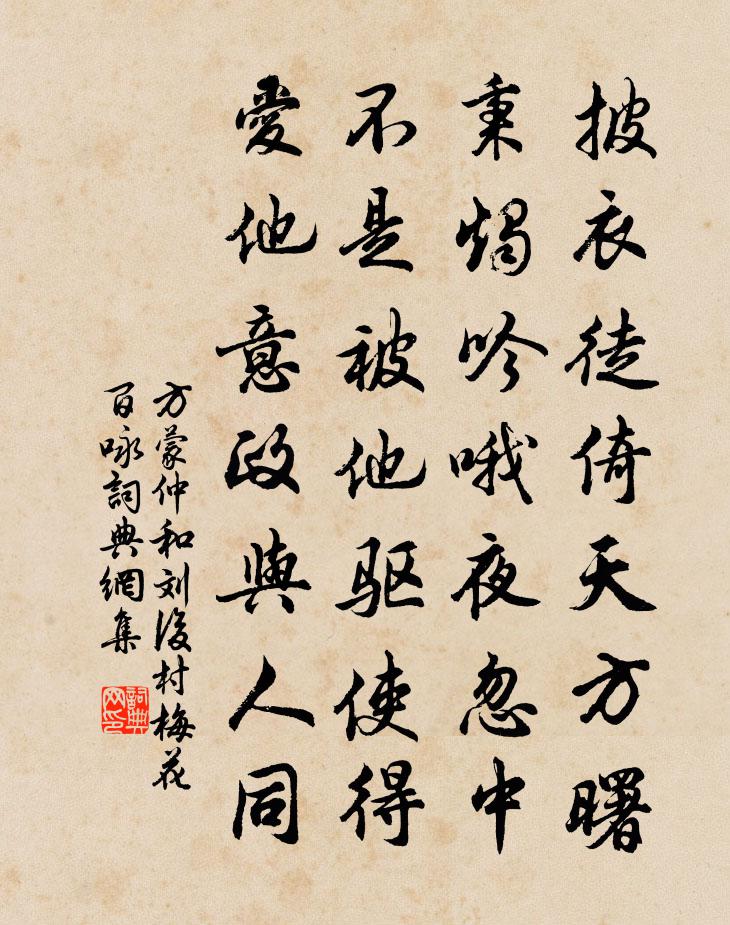 披衣徒倚天方曙
秉燭吟哦夜忽中
不是被他驱使得
愛他意政與人同
方蒙仲和刘後村梅花
百咏詞典網集
詞典网印